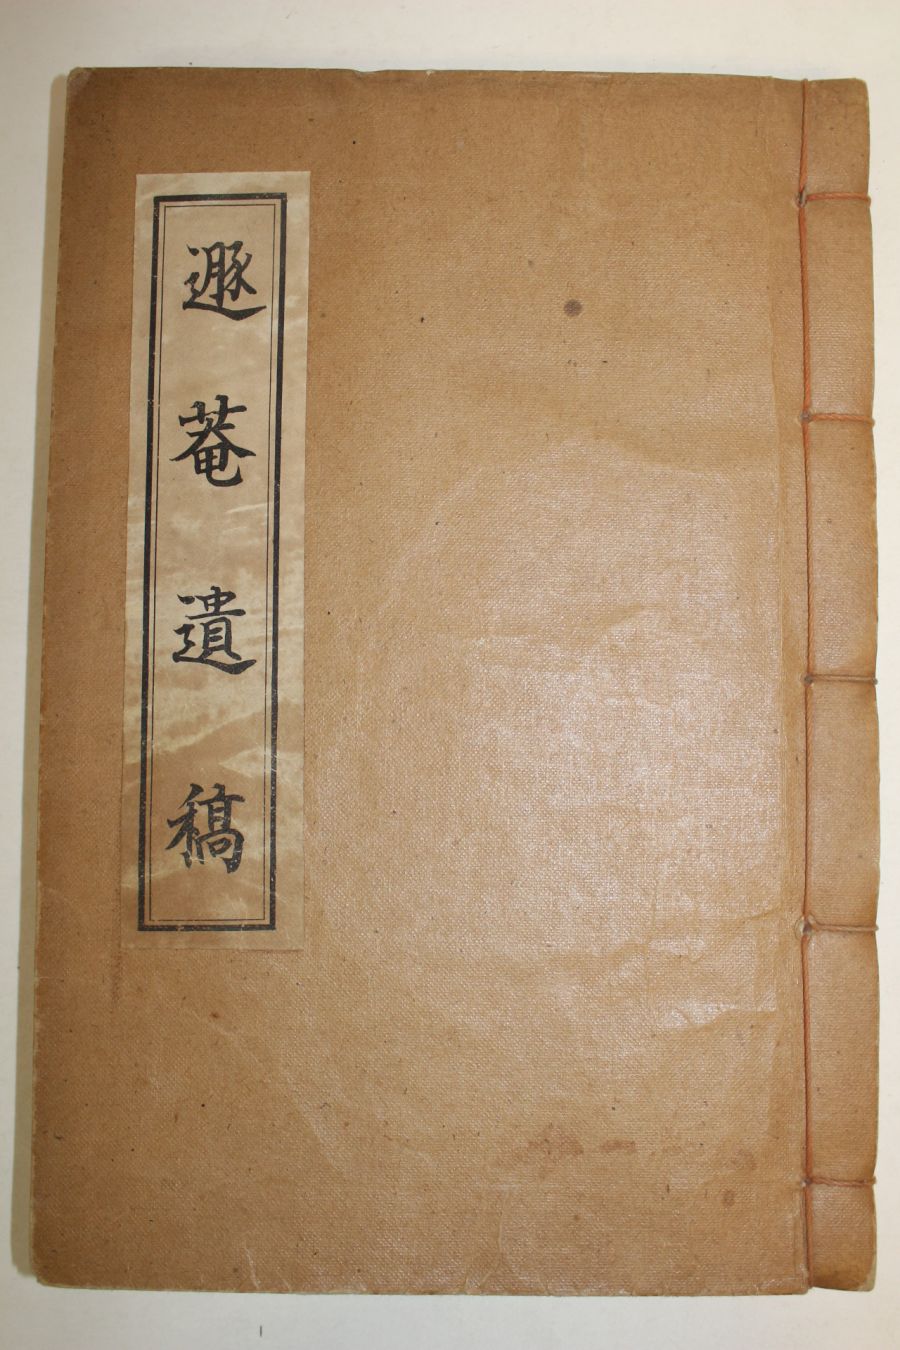 遯菴遺稿